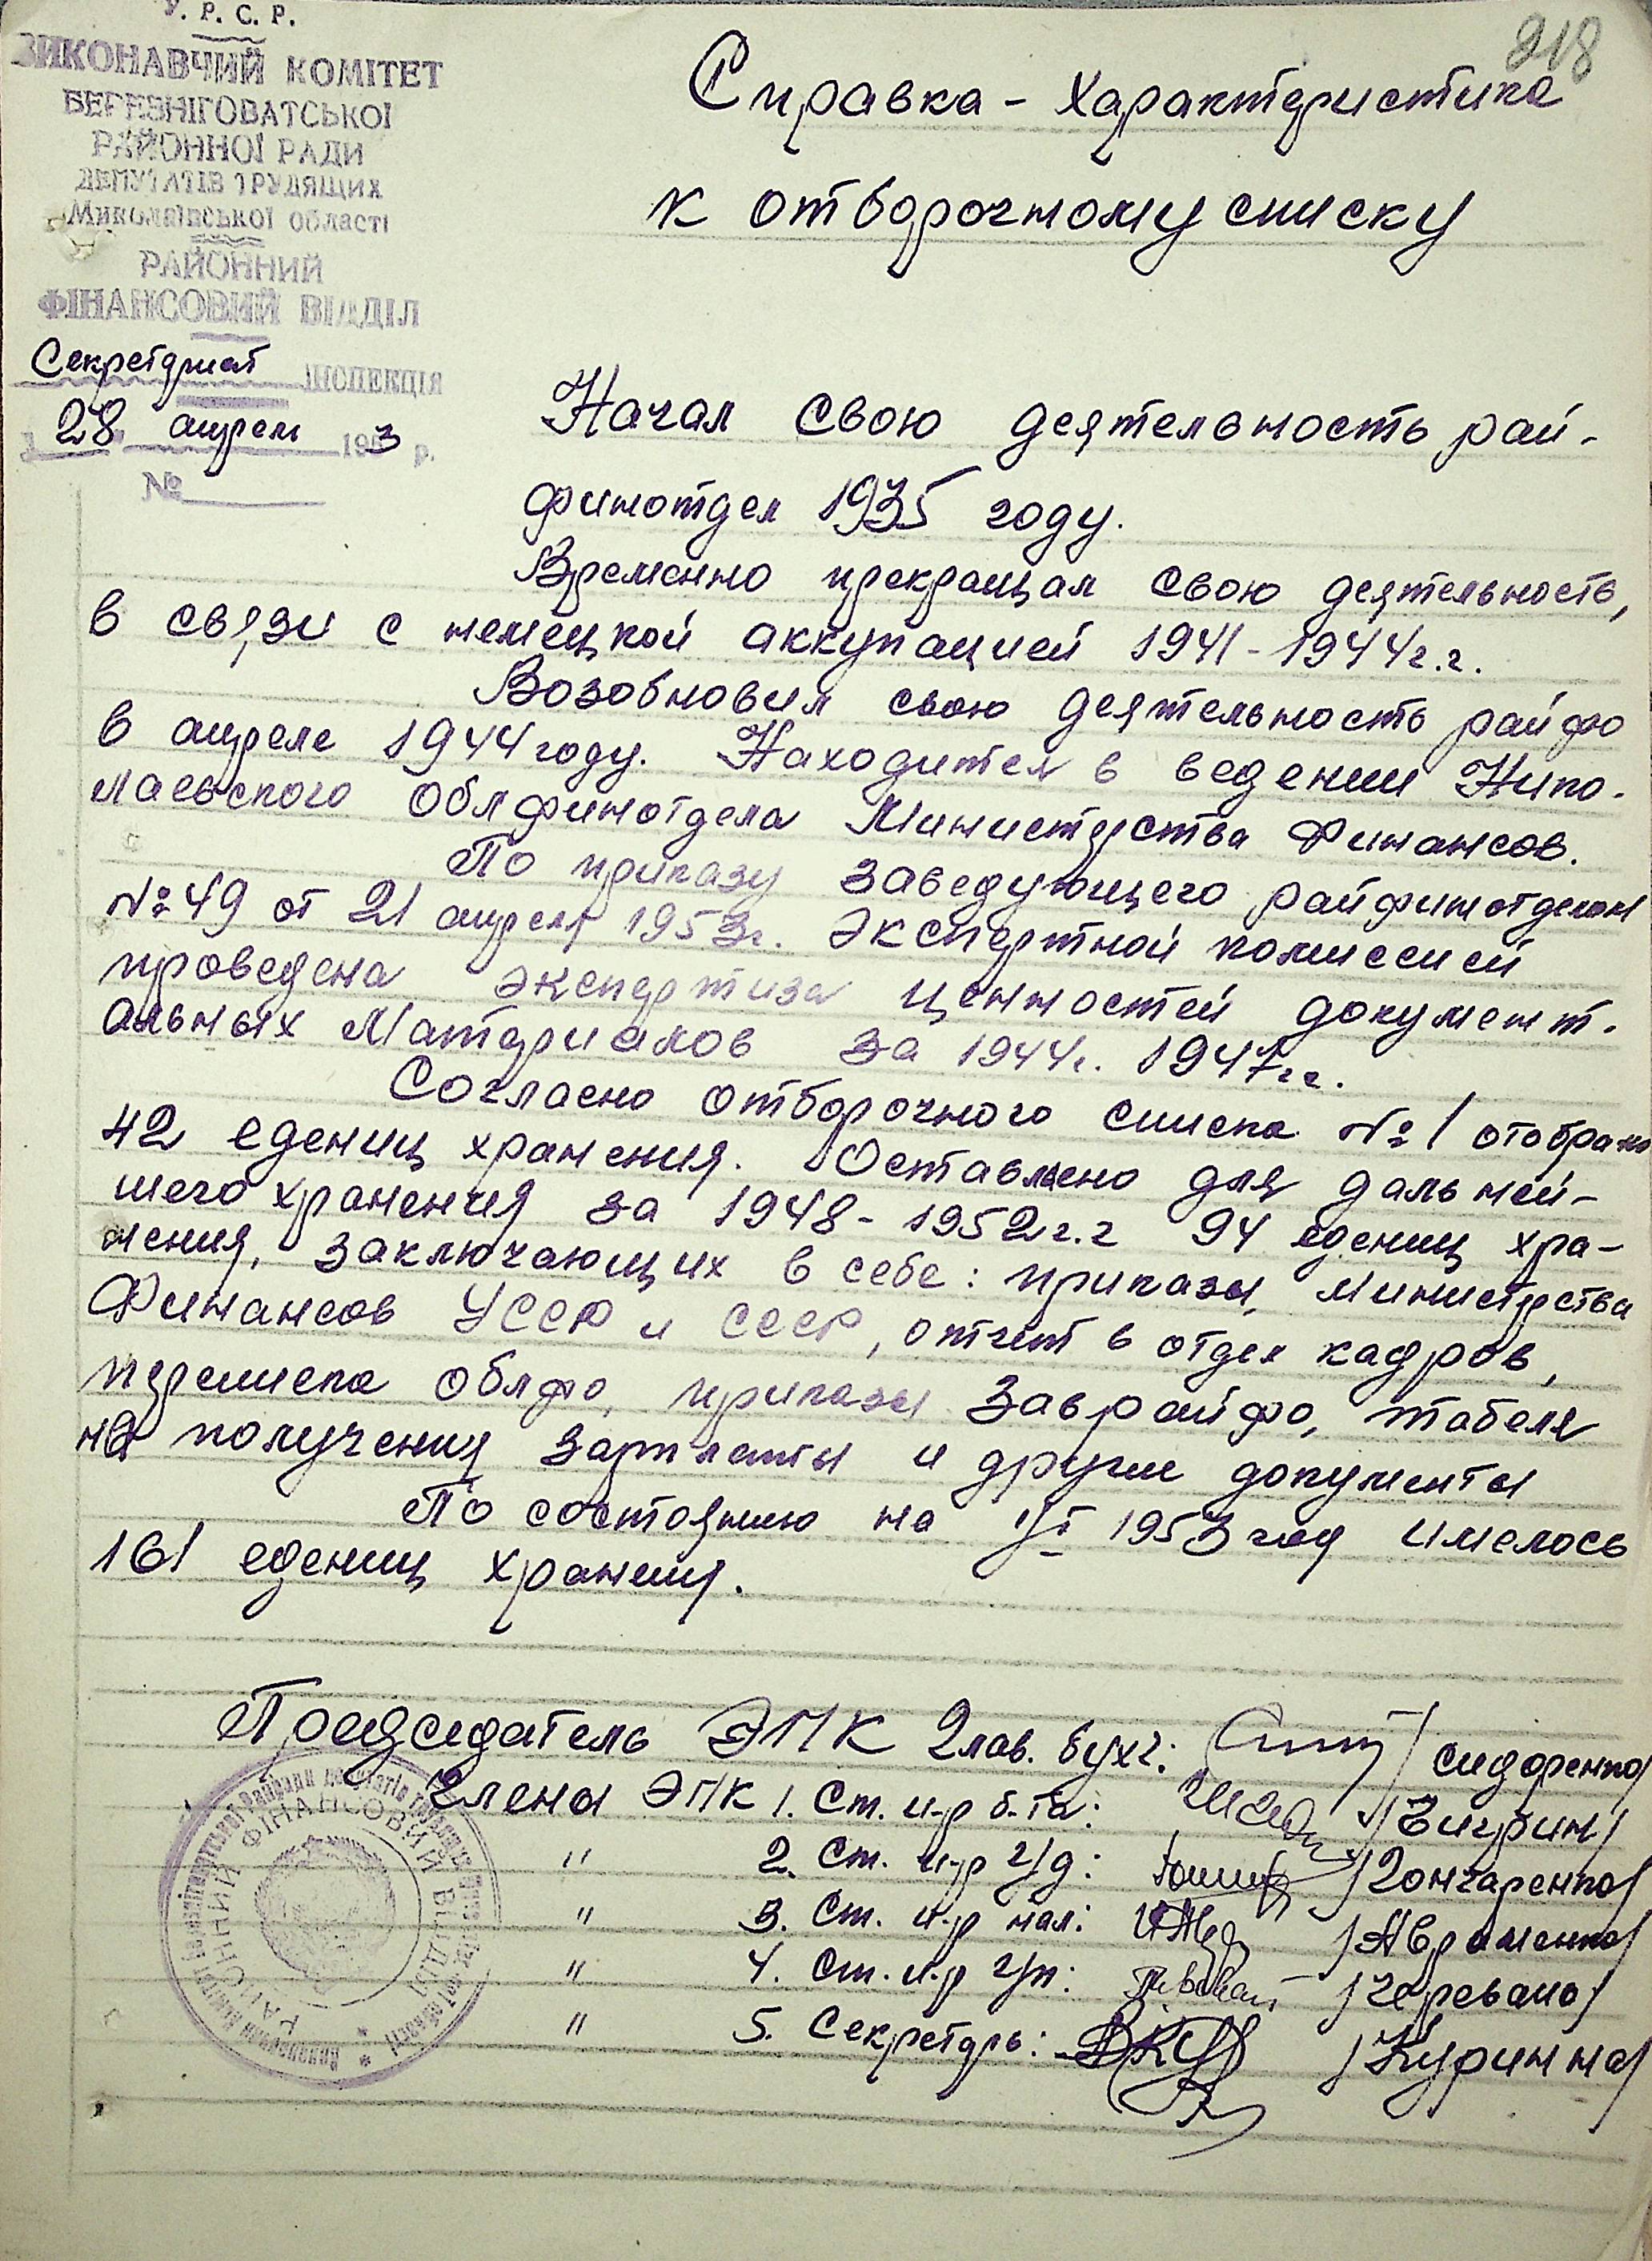 218
У. Р. С. Р.
ВИКОНАВЧИЙ КОМІТЕТ
БЕРЕЗНІГОВАТСЬКОЇ
РАЙОННОЇ РАДИ
ДЕПУТАТІВ ТРУДЯЩИХ
Миколаївської області
РАЙОННИЙ
ФІНАНСОВИЙ ВІДДІЛ
Секретариат ІНСПЕКЦІЯ
28 апреля 1953 р.
№
Справка - Характеристика
к отборочному списку
Начал свою деятельность рай-
финотдел 1935 году.
Временно прекращал свою деятельность,
в связи с немецкой аккупацией 1941-1944г.г.
Возобновил свою деятельность райфо
в апреле 1944 году. Находится в ведении Нико-
лаевского Облфинотдела Министерства Финансов.
По приказу заведующего райфинотделом
№49 от 21 апреля 1953г. Экспертной комиссией
проведена экспертиза ценностей документ-
альных Материалов за 1944г. 1947гг.
Согласно отборочного списка №1 отобрано
42 едениц хранения. Оставлено для дальней-
шего хранения за 1948-1952г.г 94 едениц хра-
нения, заключающих в себе: приказы, Министерства
Финансов УССР и СССР, отчет в отдел кадров,
переписка облфо, приказы Заврайфо, табеля
на получения зарплаты и другие документы
По состоянию на 1/I 1953 год имелось
161 едениц хранения.
Председатель ЭПК Глав. бухг: /Сидоренко/
Члены ЭПК 1. Ст. и-р б-та: /Чигрин/
" 2. Ст. и-р г/д: /Гончаренко/
" 3. Ст. и-р нал: /Авраменко/
" 4. Ст. и-р г/п: /Черевано/
" 5. Секретарь: /Куринна/
РАЙОННИЙ ФІНАНСОВИЙ ВІДДІЛ